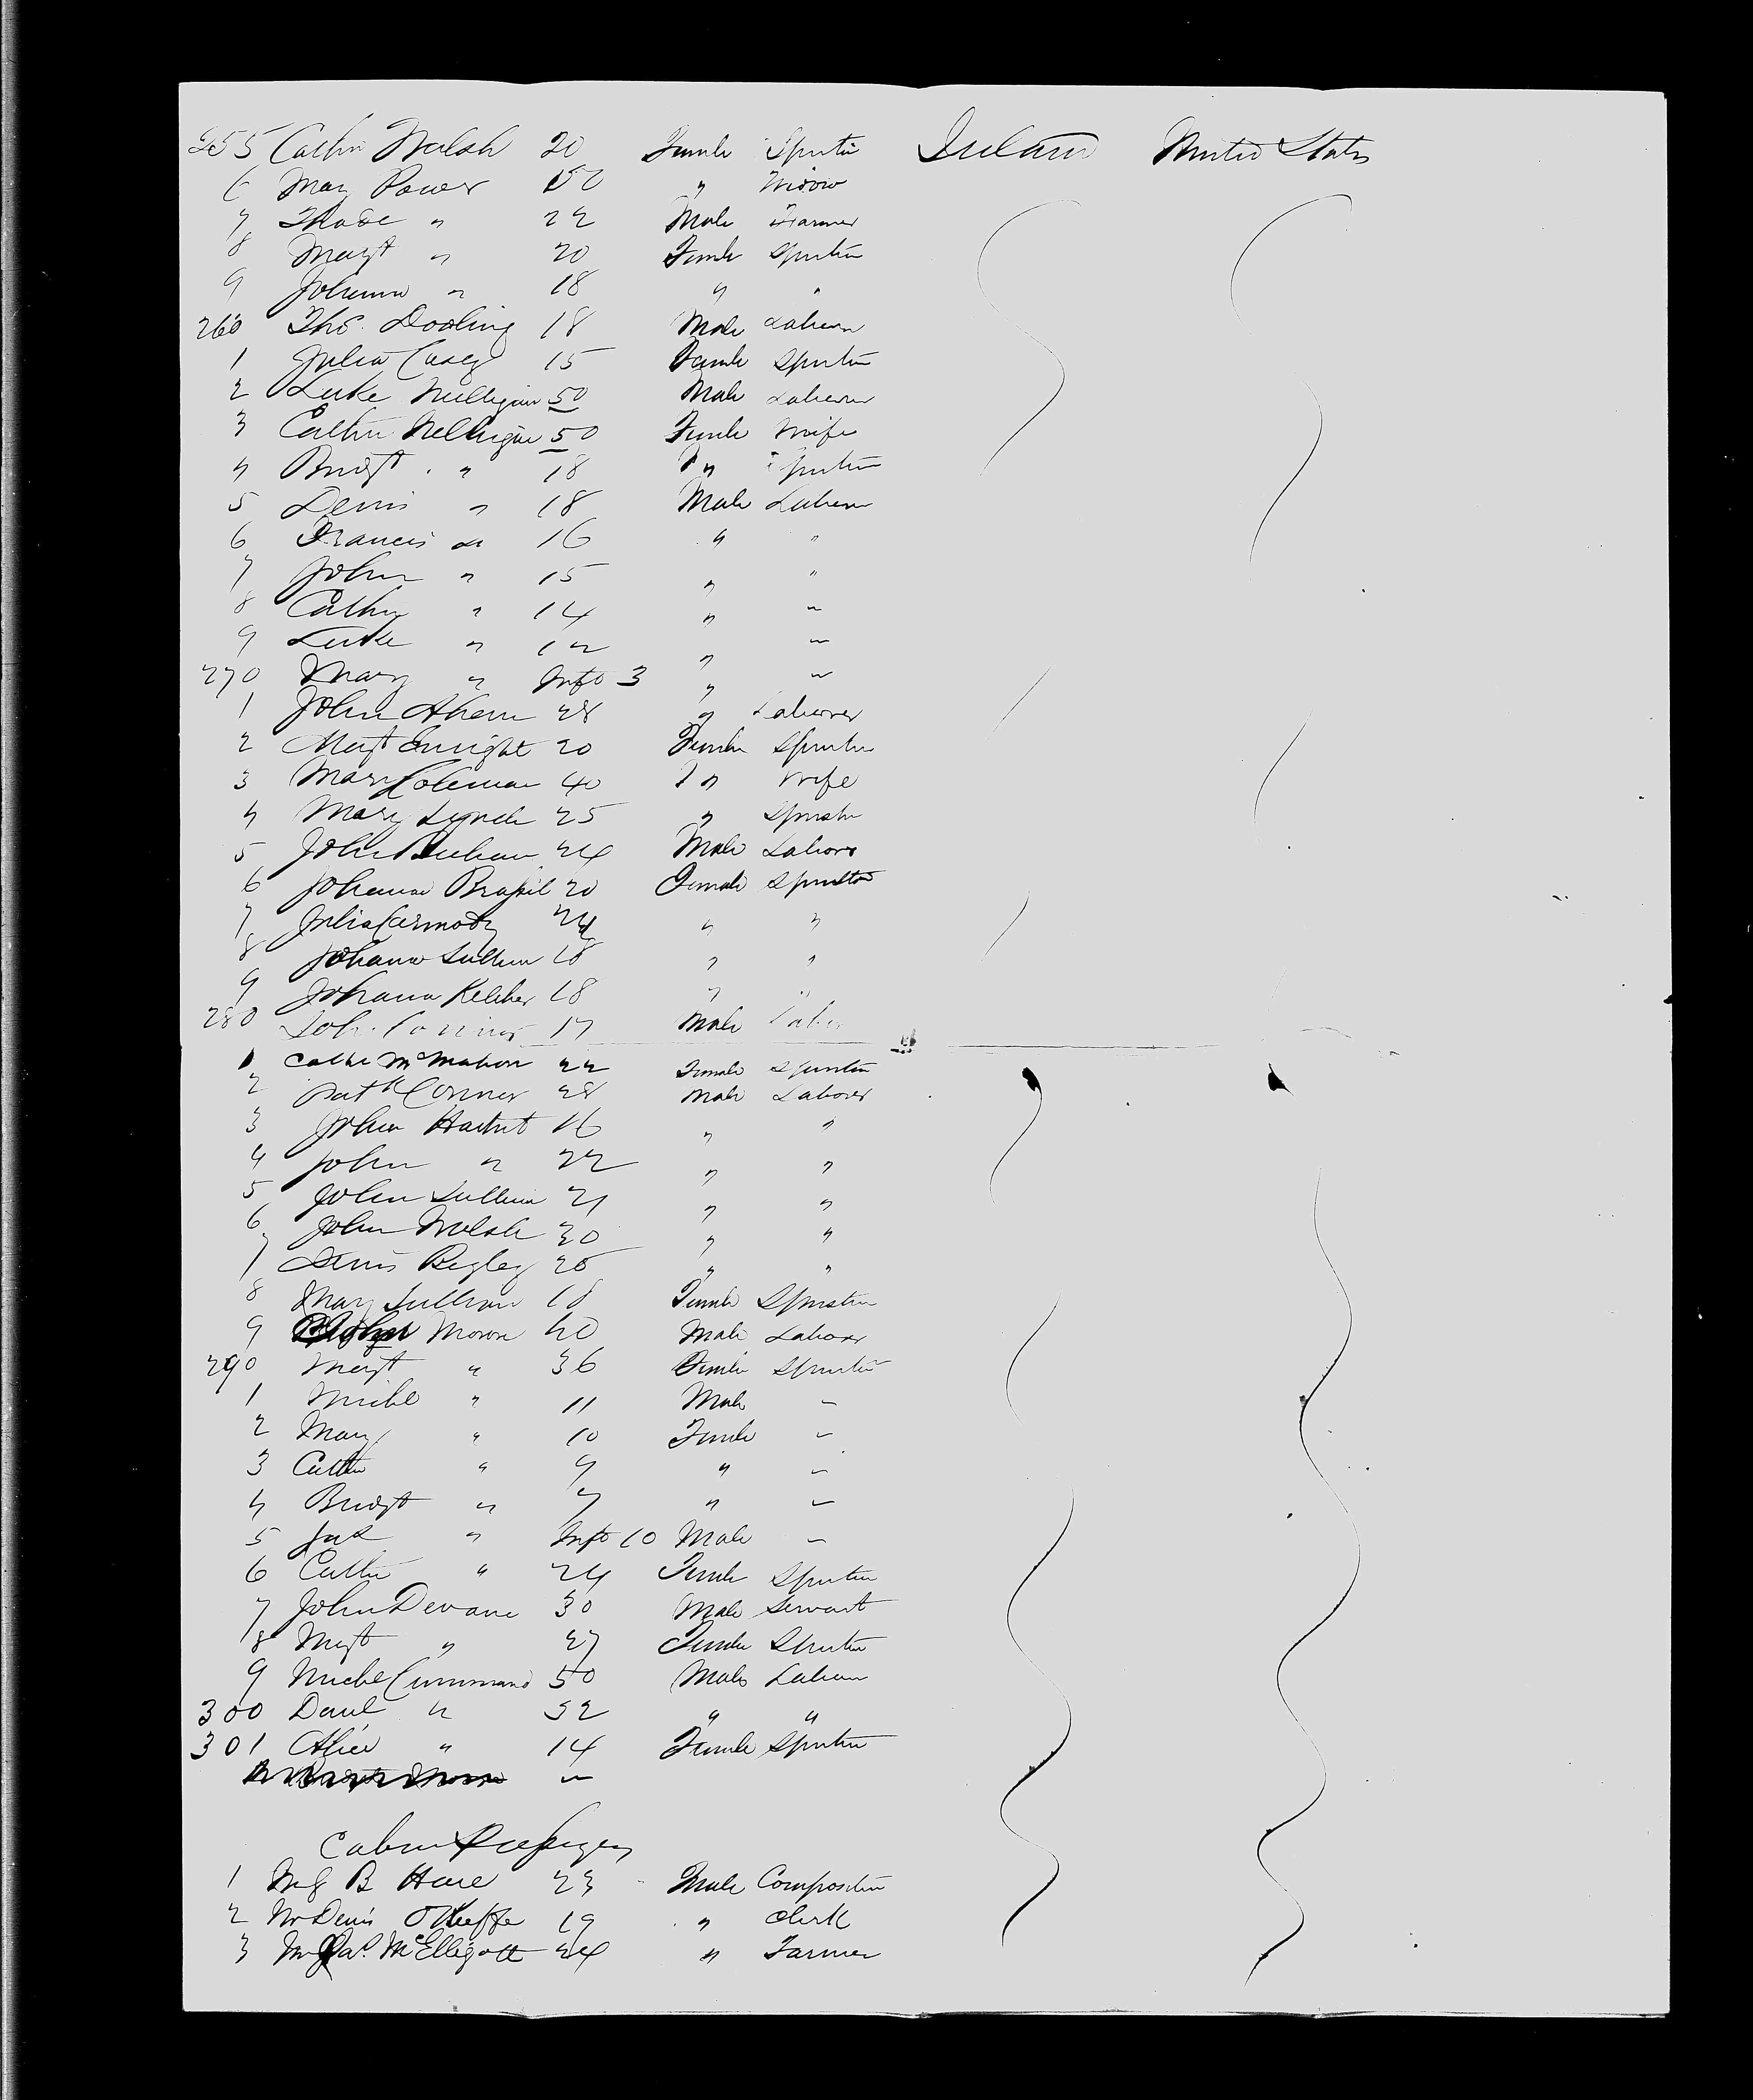 255 Cathn Walsh 20 Female Spinster Ireland United States
6 Mary Power 50 " Widow
7 " 22 Male Farmer
8 Margt " 20 Female Spinster
9 Johanna " 18 " "
260 Thos. Dooling 18 Male Laborer
1 Julia Casey 15 Female Spinster
2 Luke Nelligan 50 Male Laborer
3 Cathn Nelligan 50 Female Wife
4 Bridgt " 18 " Spinster
5 Denis " 18 Male Laborer
6 Francis " 16 " "
7 John " 15 " "
8 Cathn " 14 " "
9 Luke " 12 " "
270 Mary " Inft 3 " "
1 John Ahern 28 " Laborer
2 Margt Enright 20 Female Spinster
3 Mary Coleman 40 " Wife
4 Mary Lynch 25 " Spinster
5 John 24 Male Laborer
6 Johanna Brasil 20 Female Spinster
7 Julia Carmody 24 " "
8 Johana Sullivan 18 " "
9 Johana Keliher 18 " "
280 Connor 17 Male Labor
1 Cathe McMahon 22 Female Spinster
2 Patk Connor 28 Male Laborer
3 John Hartnet 16 " "
4 John " 22 " "
5 John Sullivan 21 " "
6 John Walsh 20 " "
7 Denis Begley 25 " "
8 Mary Sullivan 18 Female Spinster
9 John Moron 40 Male Laborer
290 Margt " 36 Female Spinster
1 Michl " 11 Male -
2 Mary " 10 Female -
3 Cathn " 9 " -
4 Bridgt " 7 " -
5 Jas " Inft 10 Male -
6 Cathn " 24 Female Spinster
7 John Devane 30 Male Servant
8 Margt " 27 Female Spinster
9 Michl Cummane 50 Male Laborer
300 Danl " 22 " "
301 Alice " 14 Female Spinster
Cabin Passengers
1 B Hare 23 Male Compositor
2 Mr Denis O'Keeffe 19 " Clerk
3 Mr Jas. McElligott 24 " Farmer